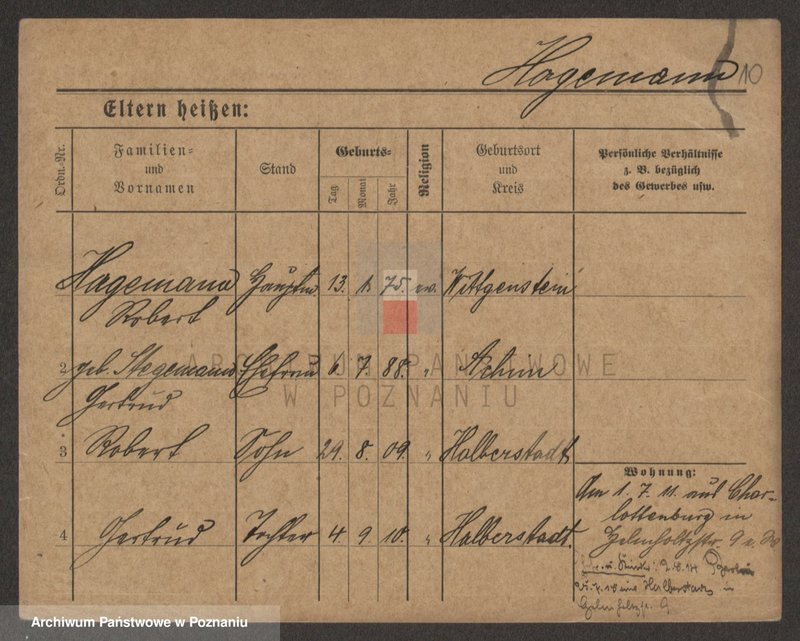 Hagemann 10
Eltern heißen:
Ordn.-Nr.
Familien- und Vornamen
Stand
Geburts-
Tag
Monat
Jahr
Religion
Geburtsort und Kreis
Persönliche Verhältnisse
z. B. bezüglich
des Gewerbes usw.
Hagemann Hauptm 13. 1. 75. ev. Wittgenstein
Robert
2 geb. Stegemann Ehefrau 6. 7. 88. " Achim
Gertrud
3 Robert Sohn 29. 8. 09. " Halberstadt
4 Gertrud Tochter 4. 9. 10. " Halberstadt.
Wohnung:
Am 1. 7. 11 aus Char-
lottenburg in
Helmholtzstr. 9
u. Kinder
Halberstadt in
ARCHIWUM PAŃSTWOWE
W POZNANIU
Archiwum Państwowe w Poznaniu